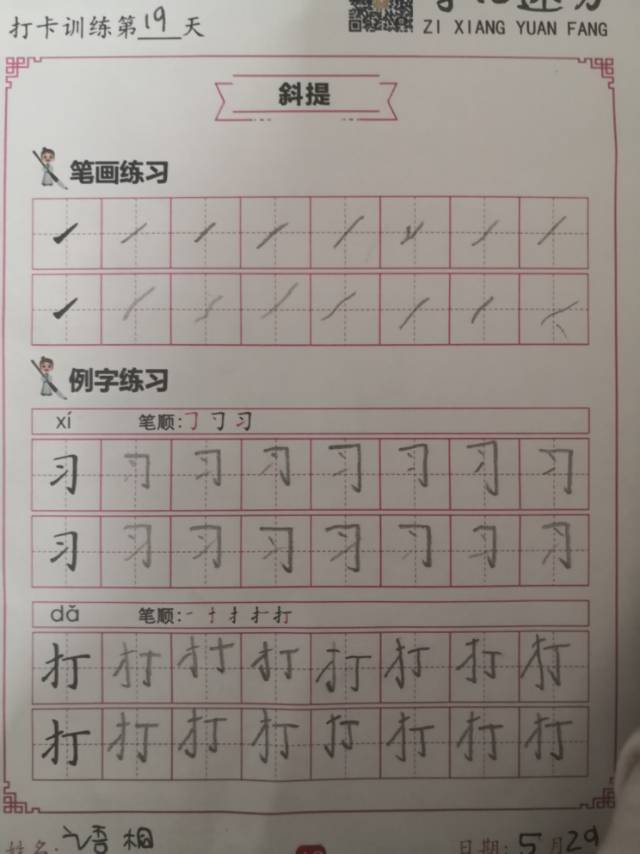 打卡训练第19天
ZI XIANG YUAN FANG
斜提
笔画练习
例字练习
xí 笔顺:㇆ 刁 习
习 习 习 习 习 习 习 习
习 习 习 习 习 习 习 习
dǎ 笔顺:一 扌 扌 扌 打
打 打 打 打 打 打 打 打
打 打 打 打 打 打 打 打
姓名: 语桐
日期: 5月29